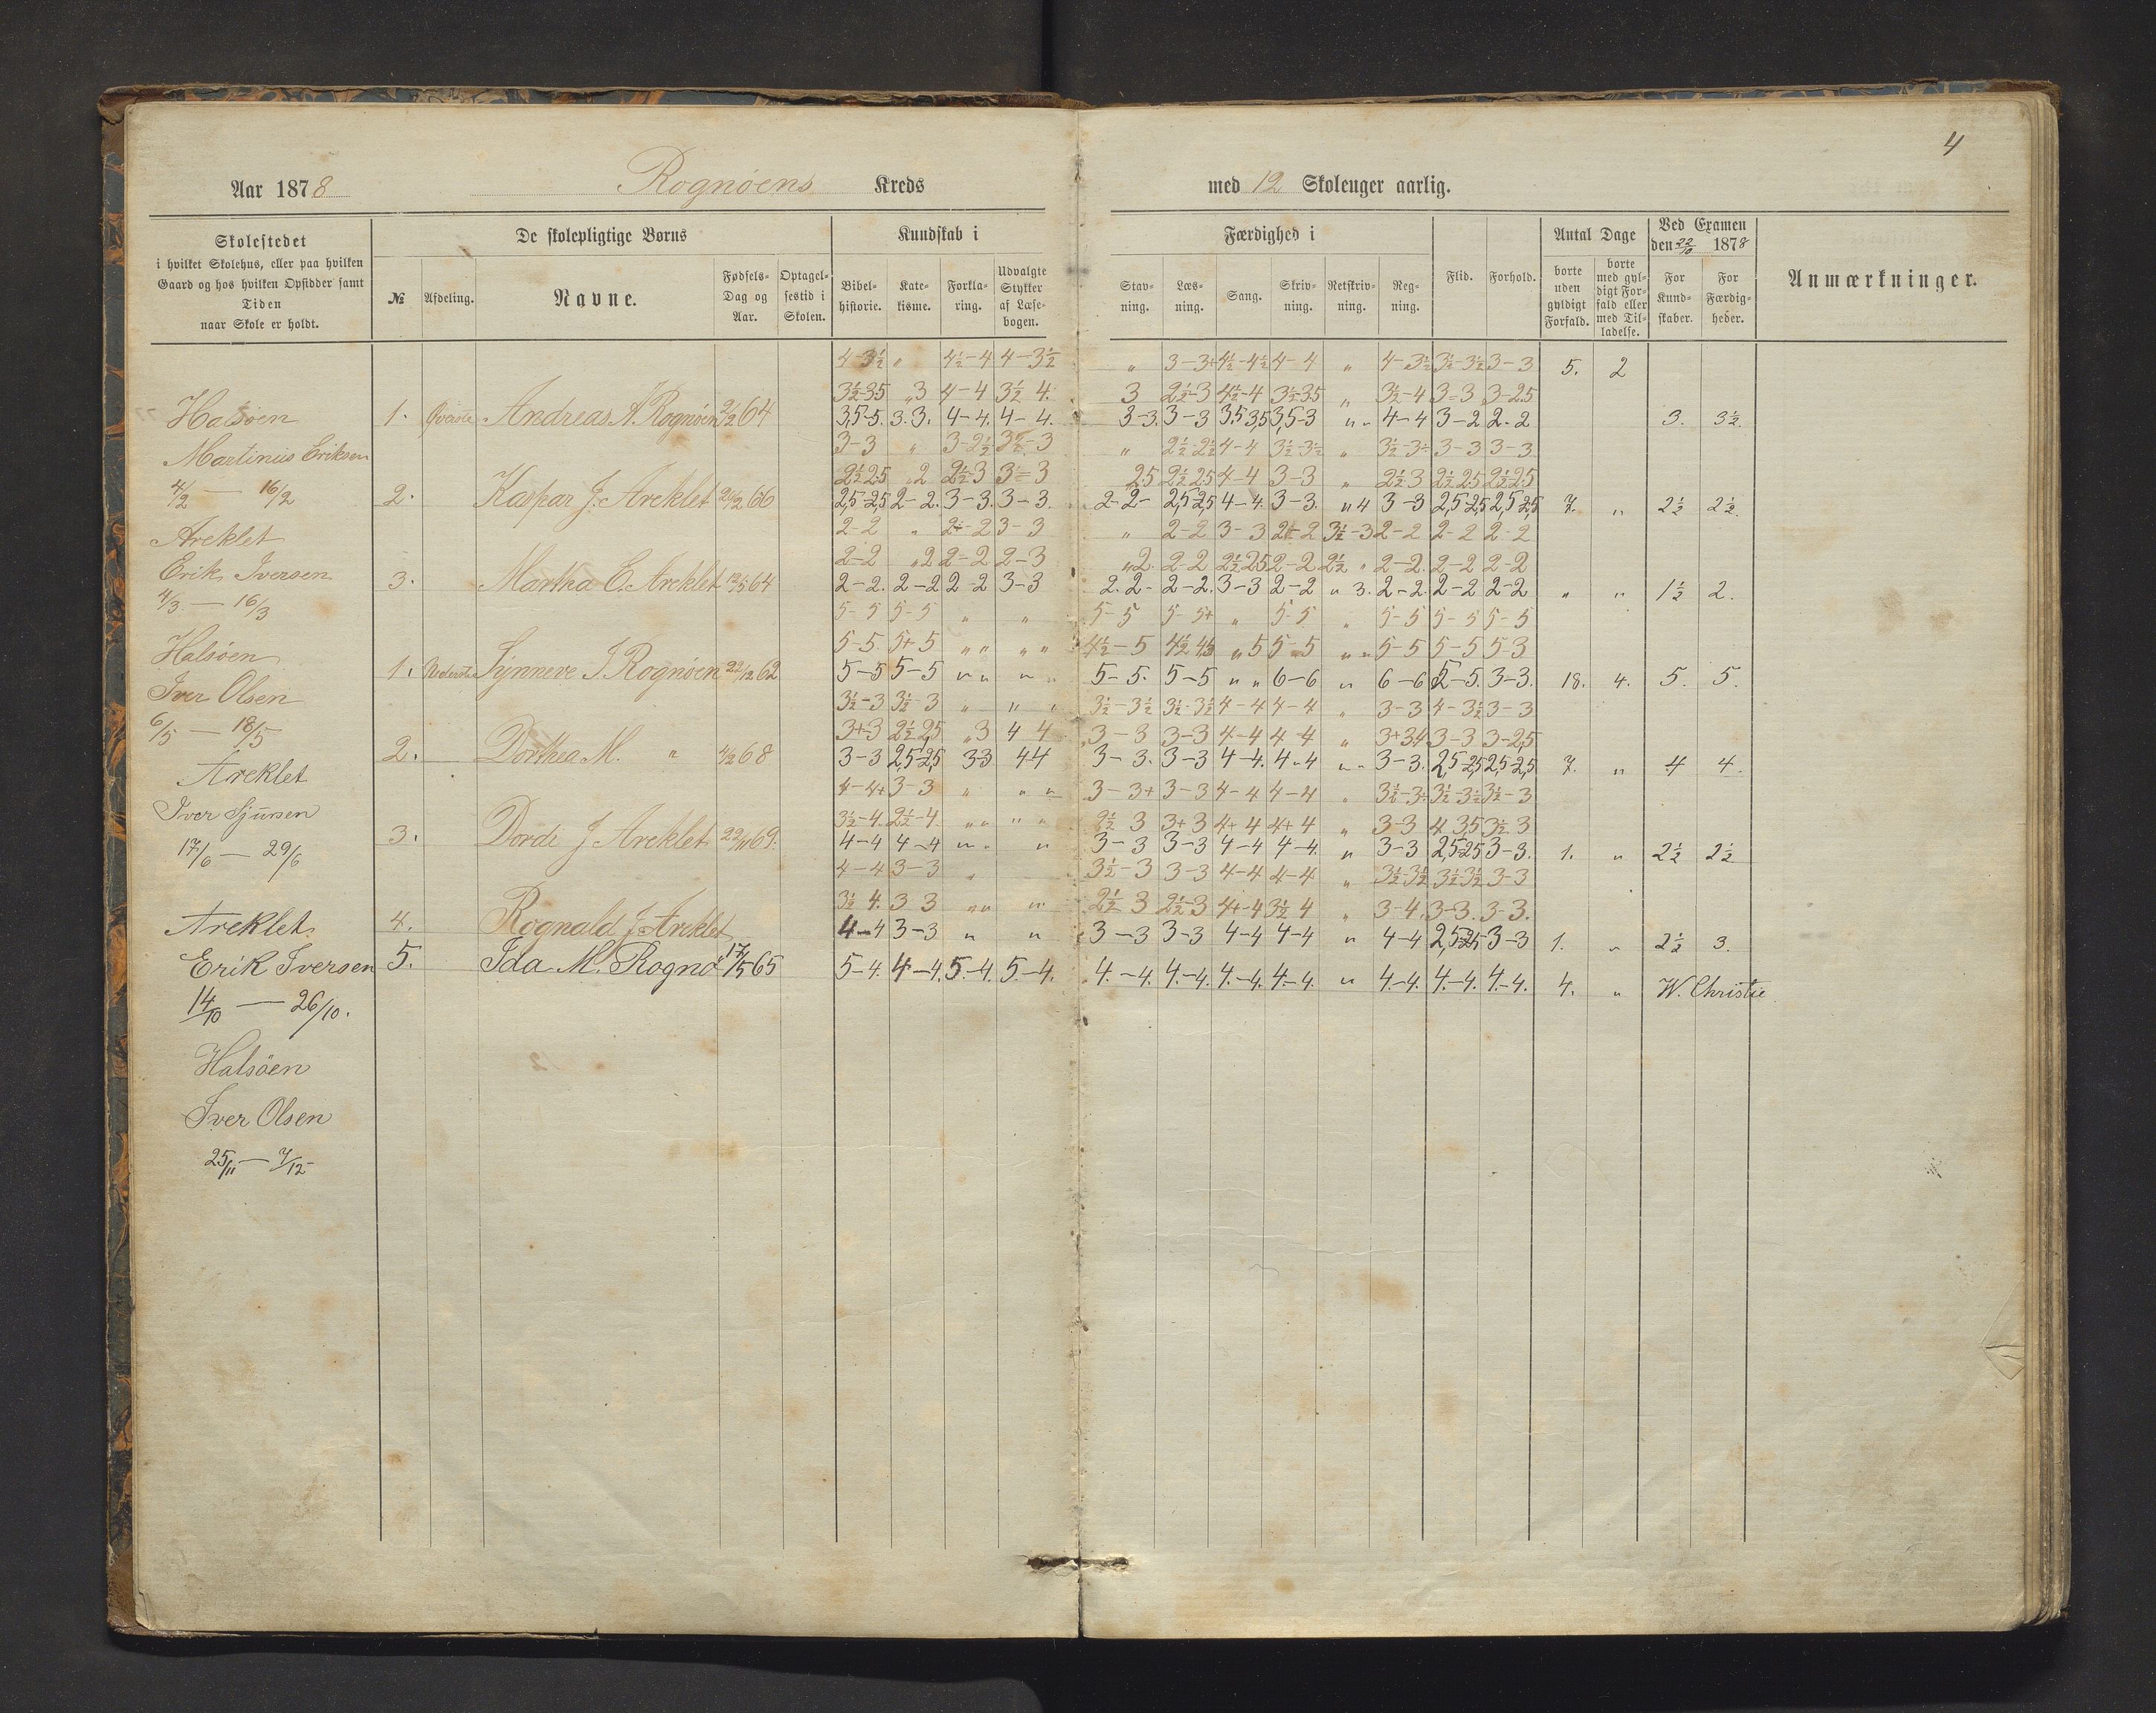 4
Aar 1878 Rognøens Kreds med 12 Skoleuger aarlig.
Skolestedet
i hvilket Skolehus, eller paa hvilken
Gaard og hos hvilken Opsidder samt
Tiden
naar Skole er holdt.
De skolepligtige Børns
№ Afdeling. Navne. Fødsels-Dag og Aar. Optagelsestid i Skolen.
Kundskab i
Bibelhistorie. Katekisme. Forklaring. Udvalgte Stykker af Læsebogen.
Færdighed i
Stavning. Læsning. Sang. Skrivning. Retskrivning. Regning.
Flid. Forhold.
Antal Dage
borte uden gyldigt Forfald. borte med gyldigt Forfald eller med Tilladelse.
Ved Examen den 22/10 1878
For Kundskaber. For Færdigheder.
Anmærkninger.
Halsøen
Martinus Eriksen
4/2 — 16/2
Areklet
Erik Iversen
4/3 — 16/3
Halsøen
Iver Olsen
6/5 — 18/5
Areklet
Iver Sjursen
17/6 — 29/6
Areklet
Erik Iversen
14/10 — 26/10.
Halsöen
Iver Olsen
25/11 — 7/12
4-3½ „ 4½-4 4-3½ „ 3-3+ 4½-4½ 4-4 „ 4-3½ 3½-3½ 3-3 5. 2
3½-3.5 „3 4-4 3½ 4. 3 2½-3 4½-4 3½-3.5 „ 3½-4 3=3 3-2.5
1. Øverste Andreas A. Rognøen 2/2 64 3,5-5. 3. 3. 4-4. 4-4. 3-3. 3-3 3.5 3,5 3,5-3 „ 4-4 3-2 2-2 3. 3½
3-3 „ 3-2½ 3½-3 „ 2½-2½ 4-4 3½-3½ „ 3½-3 3-3 3-3
2½ 2.5 2 2½-3 3=3 2.5 2½ 2.5 4-4 3-3 „ 2½-3 2½ 2.5 2½-2.5
2. Kaspar J. Areklet 2,5-2,5 2-2. 3-3. 3-3. 2-2- 2,5 2,5 4-4. 3-3. „ 4 3-3 2,5-2,5 2,5 2,5 7. „ 2½ 2½.
2-2 „ 2-2 3-3 „ 2-2 3-3 2-2 3½-3 2-2 2-2 2-2
2-2 „2 2-2 2-3 „2. 2-2 2½ 2.5 2-2 2½ „ 2-2. 2-2 2-2
3. Martha E. Areklet 64 2-2. 2-2 2-2 3-3 2. 2- 2-2. 3-3 2-2 „ 3. 2-2. 2-2 2-2 „ „ 1½ 2.
5-5 5-5 „ „ 5-5 5-5+ „ 5-5 „ 5-5 5-5 5-5
5-5. 5+5 „„ „„ 4½-5 4½ 4.5 „5 5-5 „„ 5-5 5-5 5-3
1. Nederste Synneve I Rognøen 22/12 62 5-5 5-5 „„ „„ 5-5. 5-5 „„ 6-6 „ 6-6 5-5. 3-3. 18. 4. 5. 5.
3½-3 3½-3 „ „ „ 3½-3½ 3½-3½ 4-4 4-4 „ 3-3 4-3½ 3-3
3+3 2½ 2,5 „3 4 4 3-3 3-3 4-4 4-4 „ 3+3.4 3-3 3-2,5
2. Dorthea M. „ 68 3-3 2,5-2,5 33 44 3-3. 3-3 4-4. 4-4 „ 3-3. 2,5-2,5 2,5-2,5 7. „ 4 4.
4-4+ 3-3 „ „„ 3-3+ 3-3 4-4 4-4 „ 3½-3 3½-3½ 3½-3
3½-4. 2½-4. „„ „„ 2½ 3 3+3 4+4 4+4 „ 3-3 4 3,5 3½ 3
3. Dordi J Areklet 22/11 69. 4-4 4-4 „„ „ 3-3 3-3 4-4 4-4. „ 3-3 2,5 2,5 3-3. 1. „ 2½ 2½
4-4 3-3 „ 3½-3 3-3 4-4 4-4 „ 3½-3½ 3½ 3½ 3-3
3½ 4. 3 3 „„ „ 2½ 3 2½-3 4+-4 3½ 4 „ 3-4. 3-3. 3-3.
4. Rognald J. Areklet 4-4 3-3 „ „ 3-3 3-3 4-4 4-4 „ 4-4 2,5-2,5 3-3 1. „ 2½ 3.
5. Ida M. Rognø 17/5 65 5-4. 4-4. 5-4. 5-4. 4.-4. 4.-4. 4.-4. 4.-4. „ 4.-4. 4.-4. 4.-4. 4. „ W. Christie